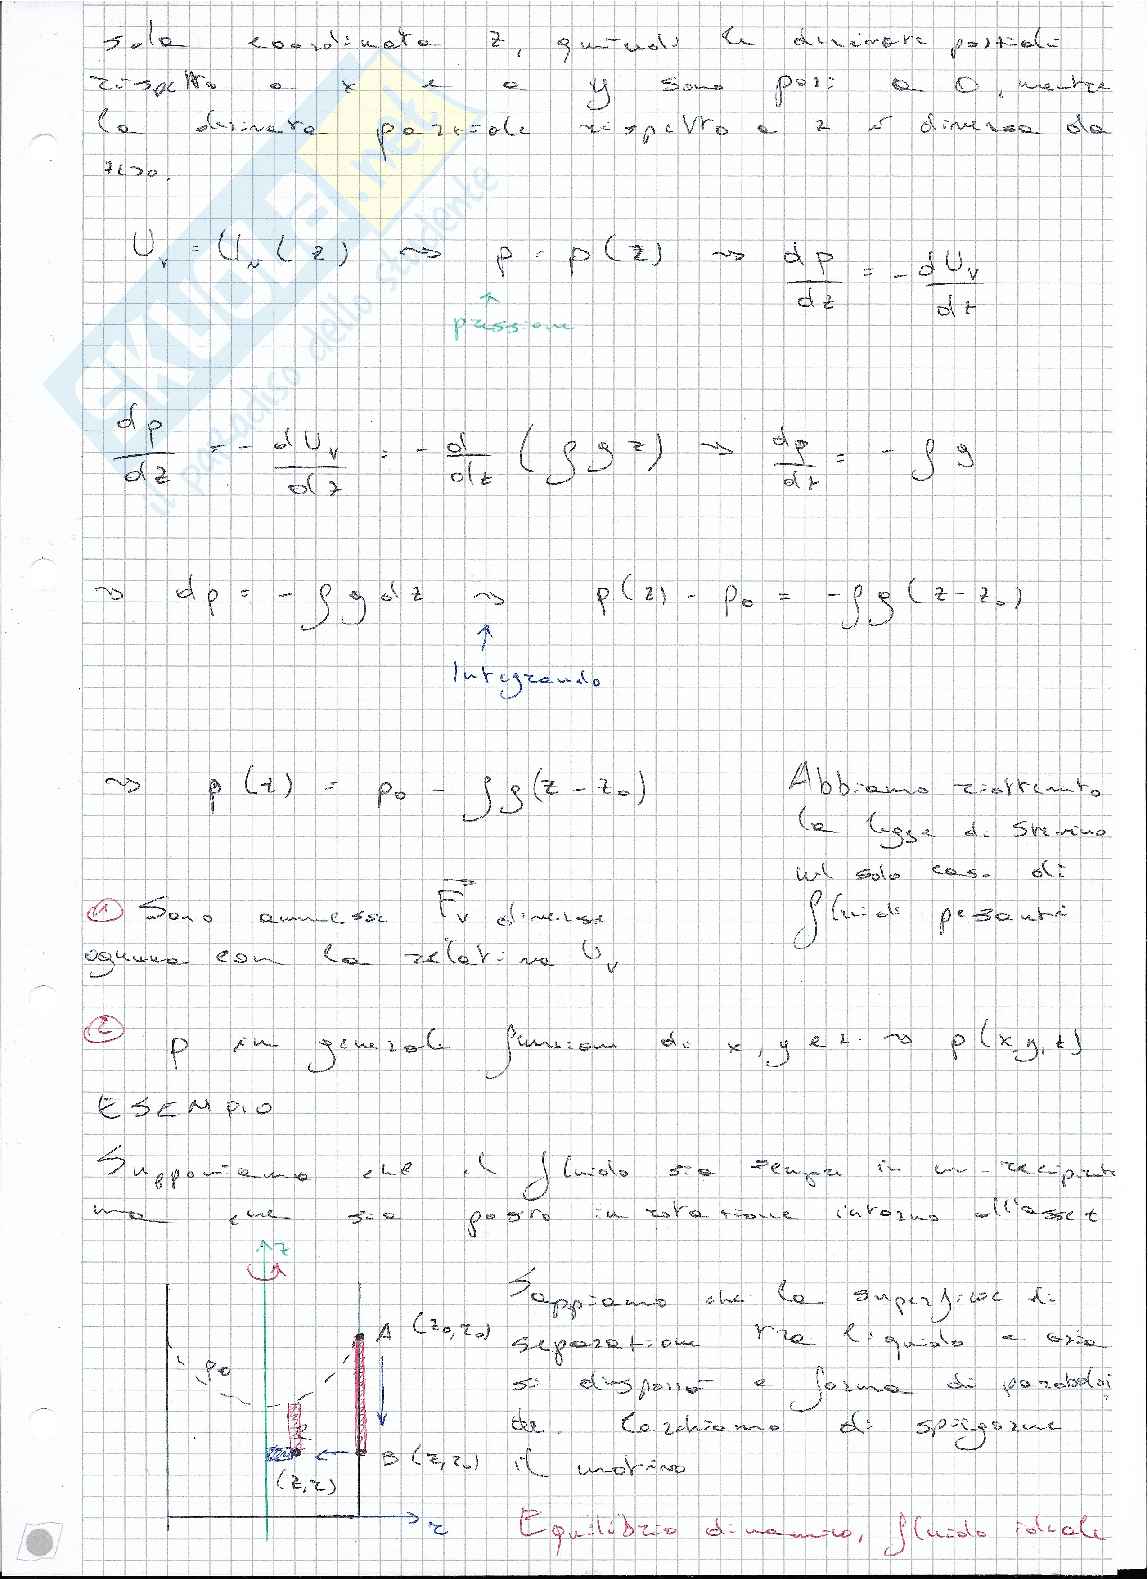 sola coordinata z, quindi le derivate parziali
rispetto a x e a y sono pari a 0, mentre
la derivata parziale rispetto a z è diversa da
zero.
SKUOLA.net
il paradiso dello studente
U_v = U_v(z) ⇝ p = p(z) ⇝ dp/dz = - dU_v/dz
↑
pressione
dp/dz = - dU_v/dz = - d/dz (ρ g z) ⇝ dp/dz = - ρ g
⇝ dp = - ρ g dz ⇝ p(z) - p₀ = - ρ g (z - z₀)
↑
Integrando
⇝ p(z) = p₀ - ρ g (z - z₀)
Abbiamo riottenuto
la legge di Stevino
nel solo caso di
fluidi pesanti
① Sono ammesse F_v diverse
ognuna con la relativa U_v
② p in generale funzione di x, y e z ⇝ p(x,y,z)
ESEMPIO
Supponiamo che il fluido sia sempre in un recipiente
ma che sia posto in rotazione intorno all'asse z
z
p₀
A (z₀,r₀)
B (z,r₀)
(z,r)
r
Sappiamo che la superficie di
separazione tra liquido e aria
si disporrà a forma di paraboloi
de. Cerchiamo di spiegarne
il motivo
Equilibrio dinamico, fluido ideale